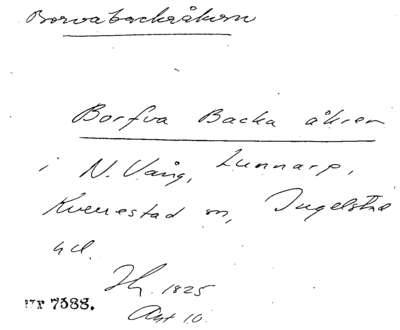 Borvabackåkern
Borfva Backa åkren
i N. Vång, Lunnarp,
Kverrestad sn, Ingelstad
hd.
Jh. 1825
Akt 10.
7588.